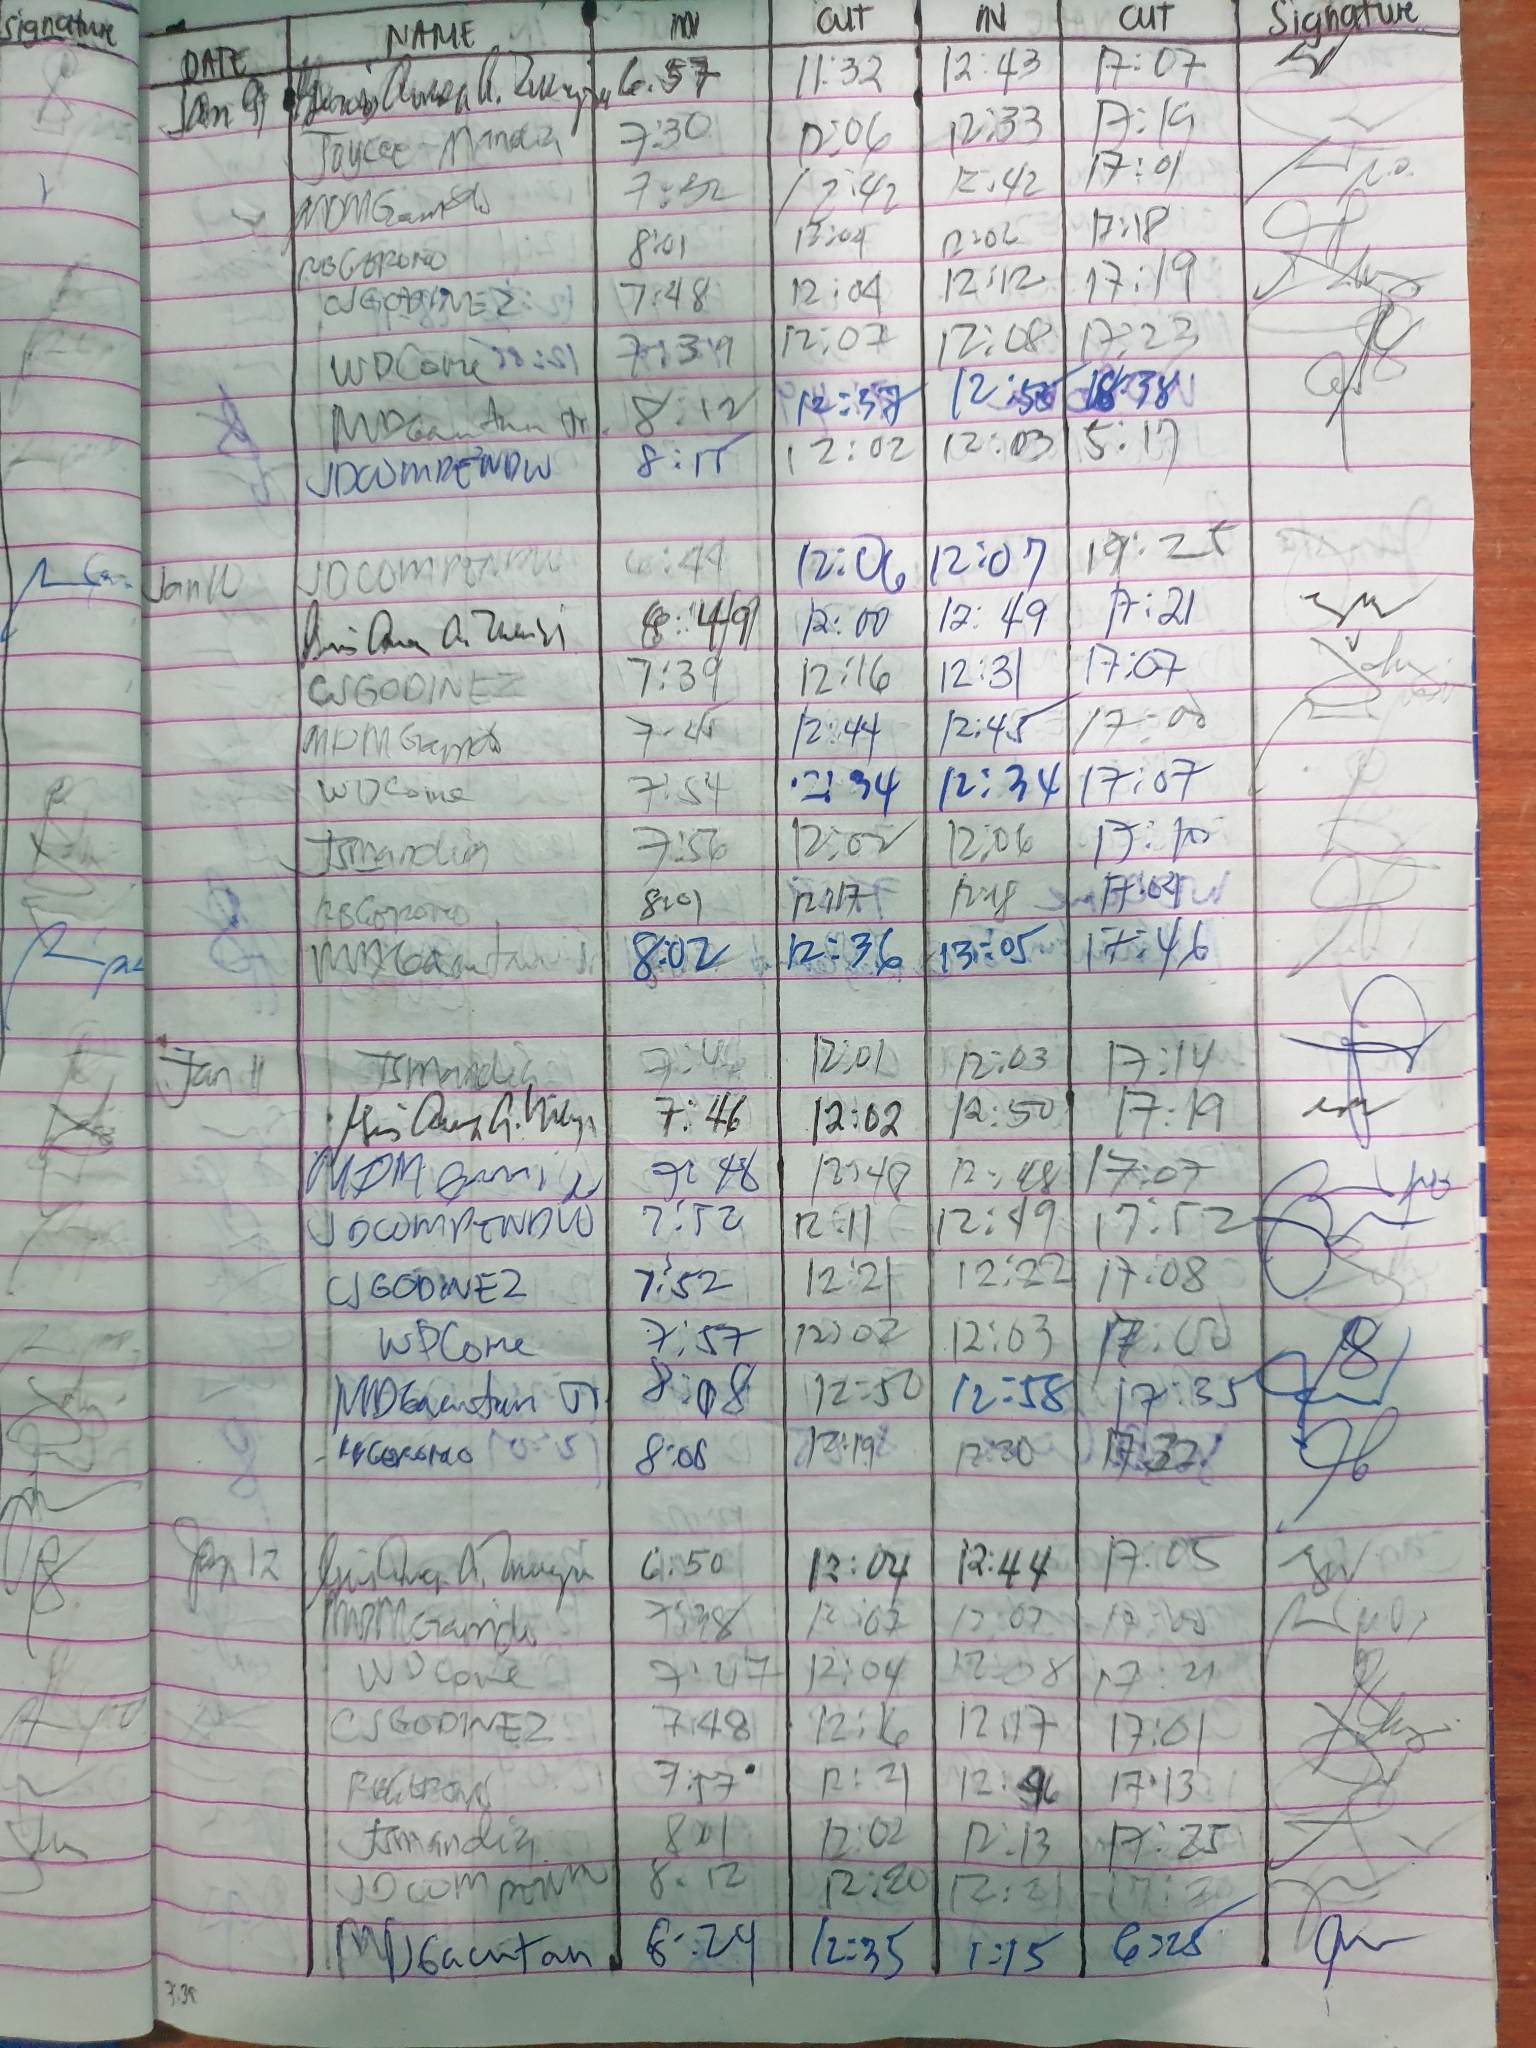 Signature
DATE NAME IN OUT IN OUT Signature
Jan 9 6:57 11:32 12:43 17:07
Jaycee Mandia 7:30 12:06 12:33 17:19
MDMGamito 7:52 12:42 12:42 17:01
8:01 12:04 12:06 17:18
CJGODINEZ 7:48 12:04 12:12 17:19
WDCome 7:39 12:07 12:08 17:23
MDGacutan Jr. 8:12 12:37 12:55 18:38
JDCOMPENDIO 8:15 12:02 12:03 5:17
Jan 10 JDCOMPENDIO 6:44 12:06 12:07 17:25
6:49 12:00 12:49 17:21
CJGODINEZ 7:39 12:16 12:31 17:07
MDMGamito 7:45 12:44 12:45 17:00
WDCome 7:54 12:34 12:34 17:07
JSmandia 7:56 12:02 12:06 17:10
8:01 12:17 12:18 17:04
MDGacutan Jr 8:02 12:36 13:05 17:46
Jan 11 JSmandia 7:44 12:01 12:03 17:14
7:46 12:02 12:50 17:19
MDMGamito 7:48 12:48 12:48 17:07
JDCOMPENDIO 7:52 12:11 12:49 17:52
CJGODINEZ 7:52 12:21 12:22 17:08
WDCome 7:57 12:02 12:03 17:00
MDGacutan Jr. 8:08 12:50 12:58 17:35
8:06 12:19 12:30 17:32
Jan 12 6:50 12:04 12:44 17:05
MDMGamito 7:38 12:07 12:07 17:00
WDCome 7:47 12:04 12:08 17:21
CJGODINEZ 7:48 12:16 12:17 17:01
7:57 12:21 12:46 17:13
JSmandia 8:01 12:02 12:13 17:25
JDCOMPENDIO 8:12 12:20 12:21
MDGacutan 8:24 12:35 1:15 6:25